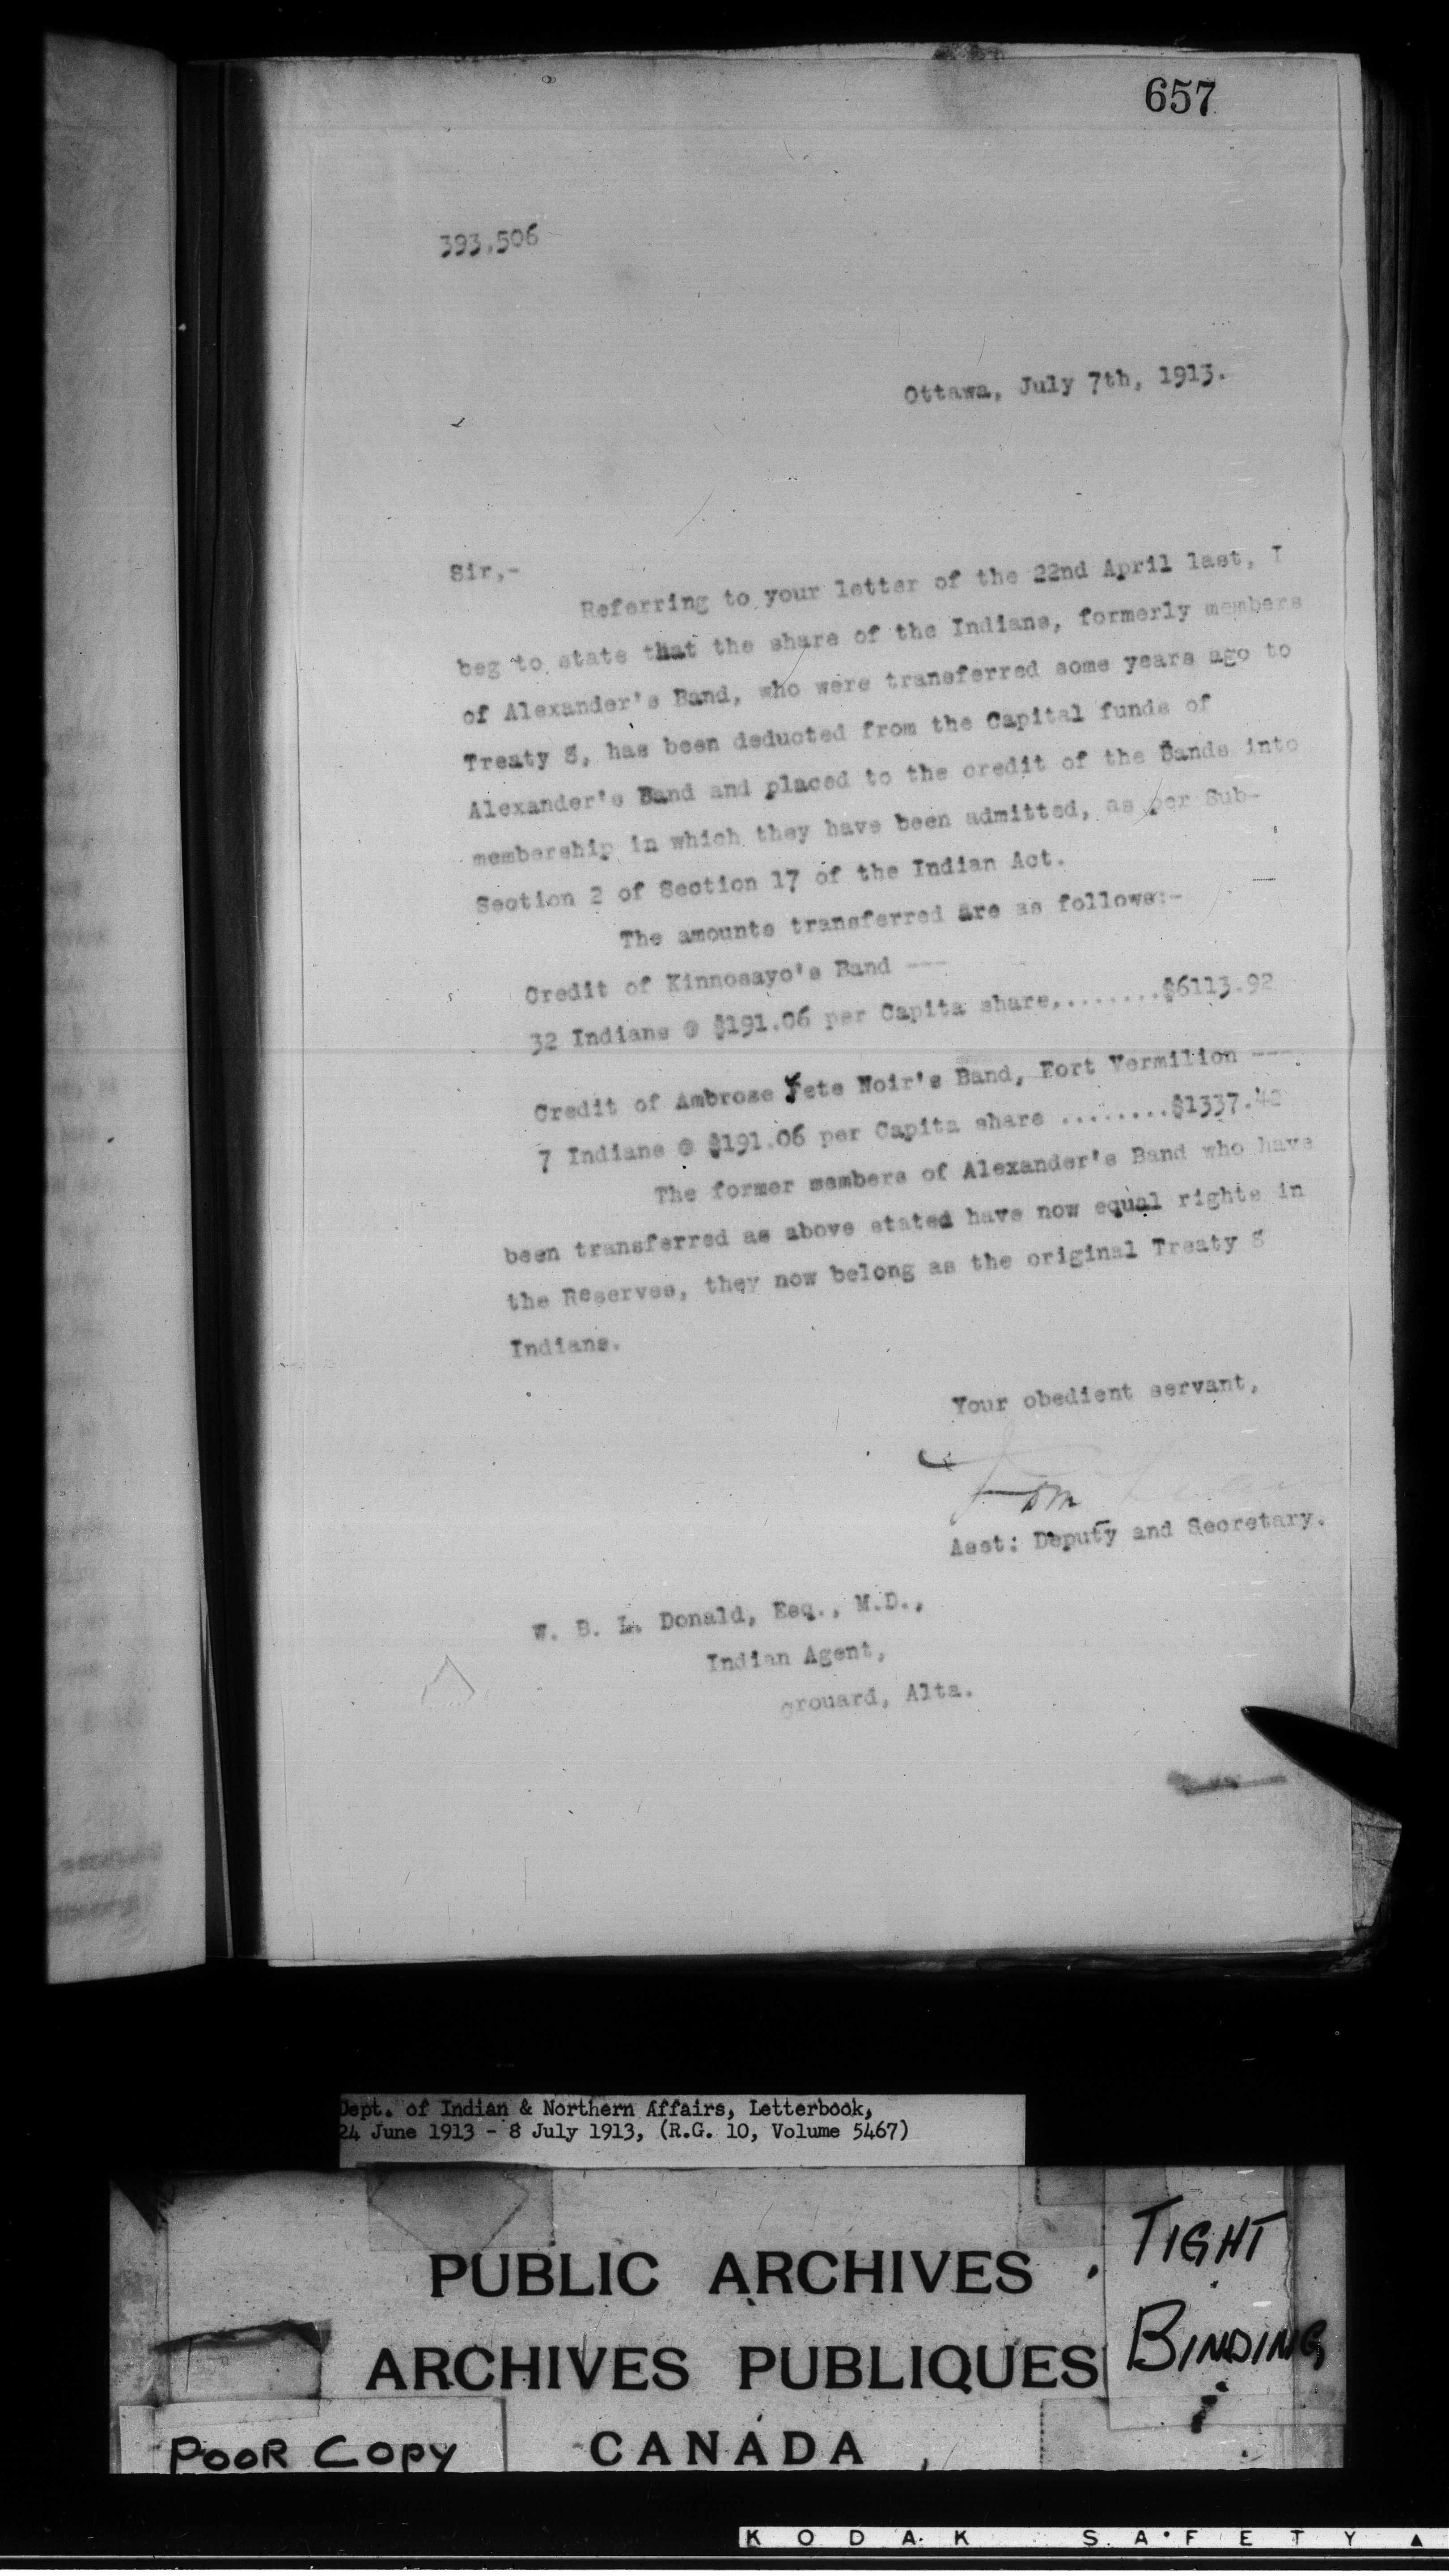 657
393,506
Ottawa, July 7th, 1913.
Sir,-
Referring to your letter of the 22nd April last, I
beg to state that the share of the Indians, formerly members
of Alexander's Band, who were transferred some years ago to
Treaty 8, has been deducted from the Capital funds of
Alexander's Band and placed to the credit of the Bands into
membership in which they have been admitted, as per Sub-
Section 2 of Section 17 of the Indian Act.
The amounts transferred are as follows:-
Credit of Kinnosayo's Band ---
32 Indians @ $191.06 per Capita share,........$6113.92
Credit of Ambrose Tete Noir's Band, Fort Vermilion ---
7 Indians @ $191.06 per Capita share ........$1337.42
The former members of Alexander's Band who have
been transferred as above stated have now equal rights in
the Reserves, they now belong as the original Treaty 8
Indians.
Your obedient servant,
Asst: Deputy and Secretary.
W. B. L. Donald, Esq., M.D.,
Indian Agent,
Grouard, Alta.
Dept. of Indian & Northern Affairs, Letterbook,
24 June 1913 - 8 July 1913, (R.G. 10, Volume 5467)
PUBLIC ARCHIVES
ARCHIVES PUBLIQUES
CANADA
TIGHT
BINDING
POOR COPY
KODAK SAFETY